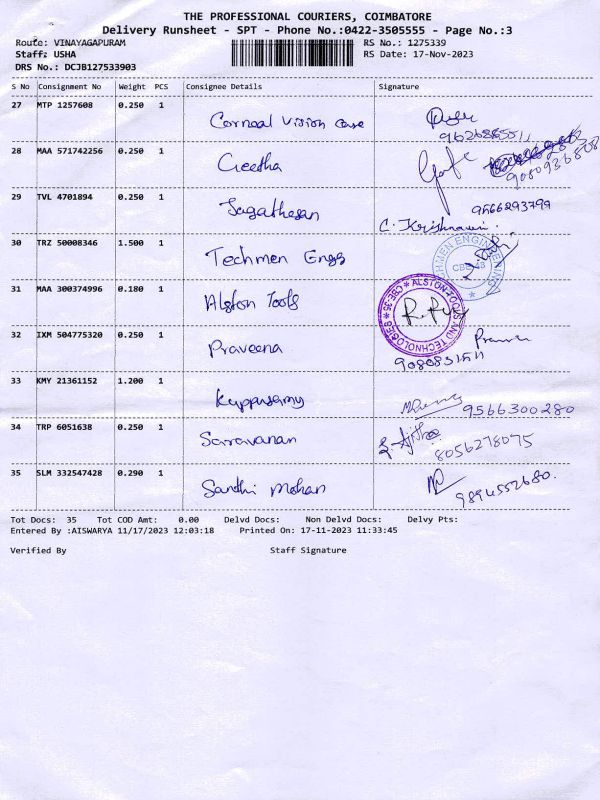 THE PROFESSIONAL COURIERS, COIMBATORE
Delivery Runsheet - SPT - Phone No.:0422-3505555 - Page No.:3
Route: VINAYAGAPURAM
RS No.: 1275339
Staff: USHA
RS Date: 17-Nov-2023
DRS No.: DCJB127533903
S No Consignment No Weight PCS Consignee Details Signature
27 MTP 1257608 0.250 1 Corneal Vision Care
28 MAA 571742256 0.250 1 Geetha 9080936808
29 TVL 4701894 0.250 1 Jagathesan 9566293799
C. Krishnaveni
30 TRZ 50008346 1.500 1 Techmen Engg
31 MAA 300374996 0.180 1 Alston Tools
ALSTON TOOLS AND TECHNOLOGIES CBE-35
32 IXM 504775320 0.250 1 Praveena
33 KMY 21361152 1.200 1 Kuppusamy 9566300280
34 TRP 6051638 0.250 1 Saravanan 8056278075
35 SLM 332547428 0.290 1 Santhi Mohan 9894552680.
Tot Docs: 35 Tot COD Amt: 0.00 Delvd Docs: Non Delvd Docs: Delvy Pts:
Entered By :AISWARYA 11/17/2023 12:03:18 Printed On: 17-11-2023 11:33:45
Verified By Staff Signature